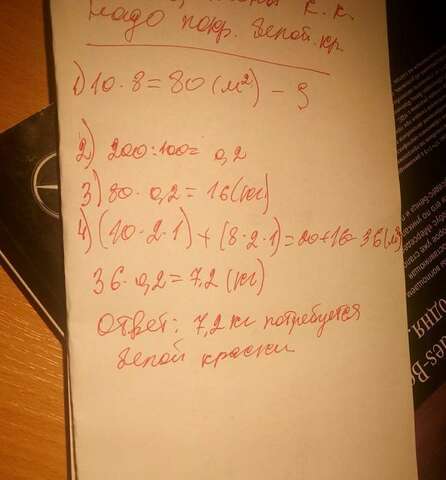 к. к.
надо покр. белой. кр.
1) 10 · 8 = 80 (м²) - S
2) 200 : 100 = 0,2
3) 80 · 0,2 = 16 (кг)
4) (10 · 2 · 1) + (8 · 2 · 1) = 20 + 16 = 36 (м²)
36 · 0,2 = 7,2 (кг)
Ответ: 7,2 кг потребуется
белой краски
ОДНЯ.
des-Be